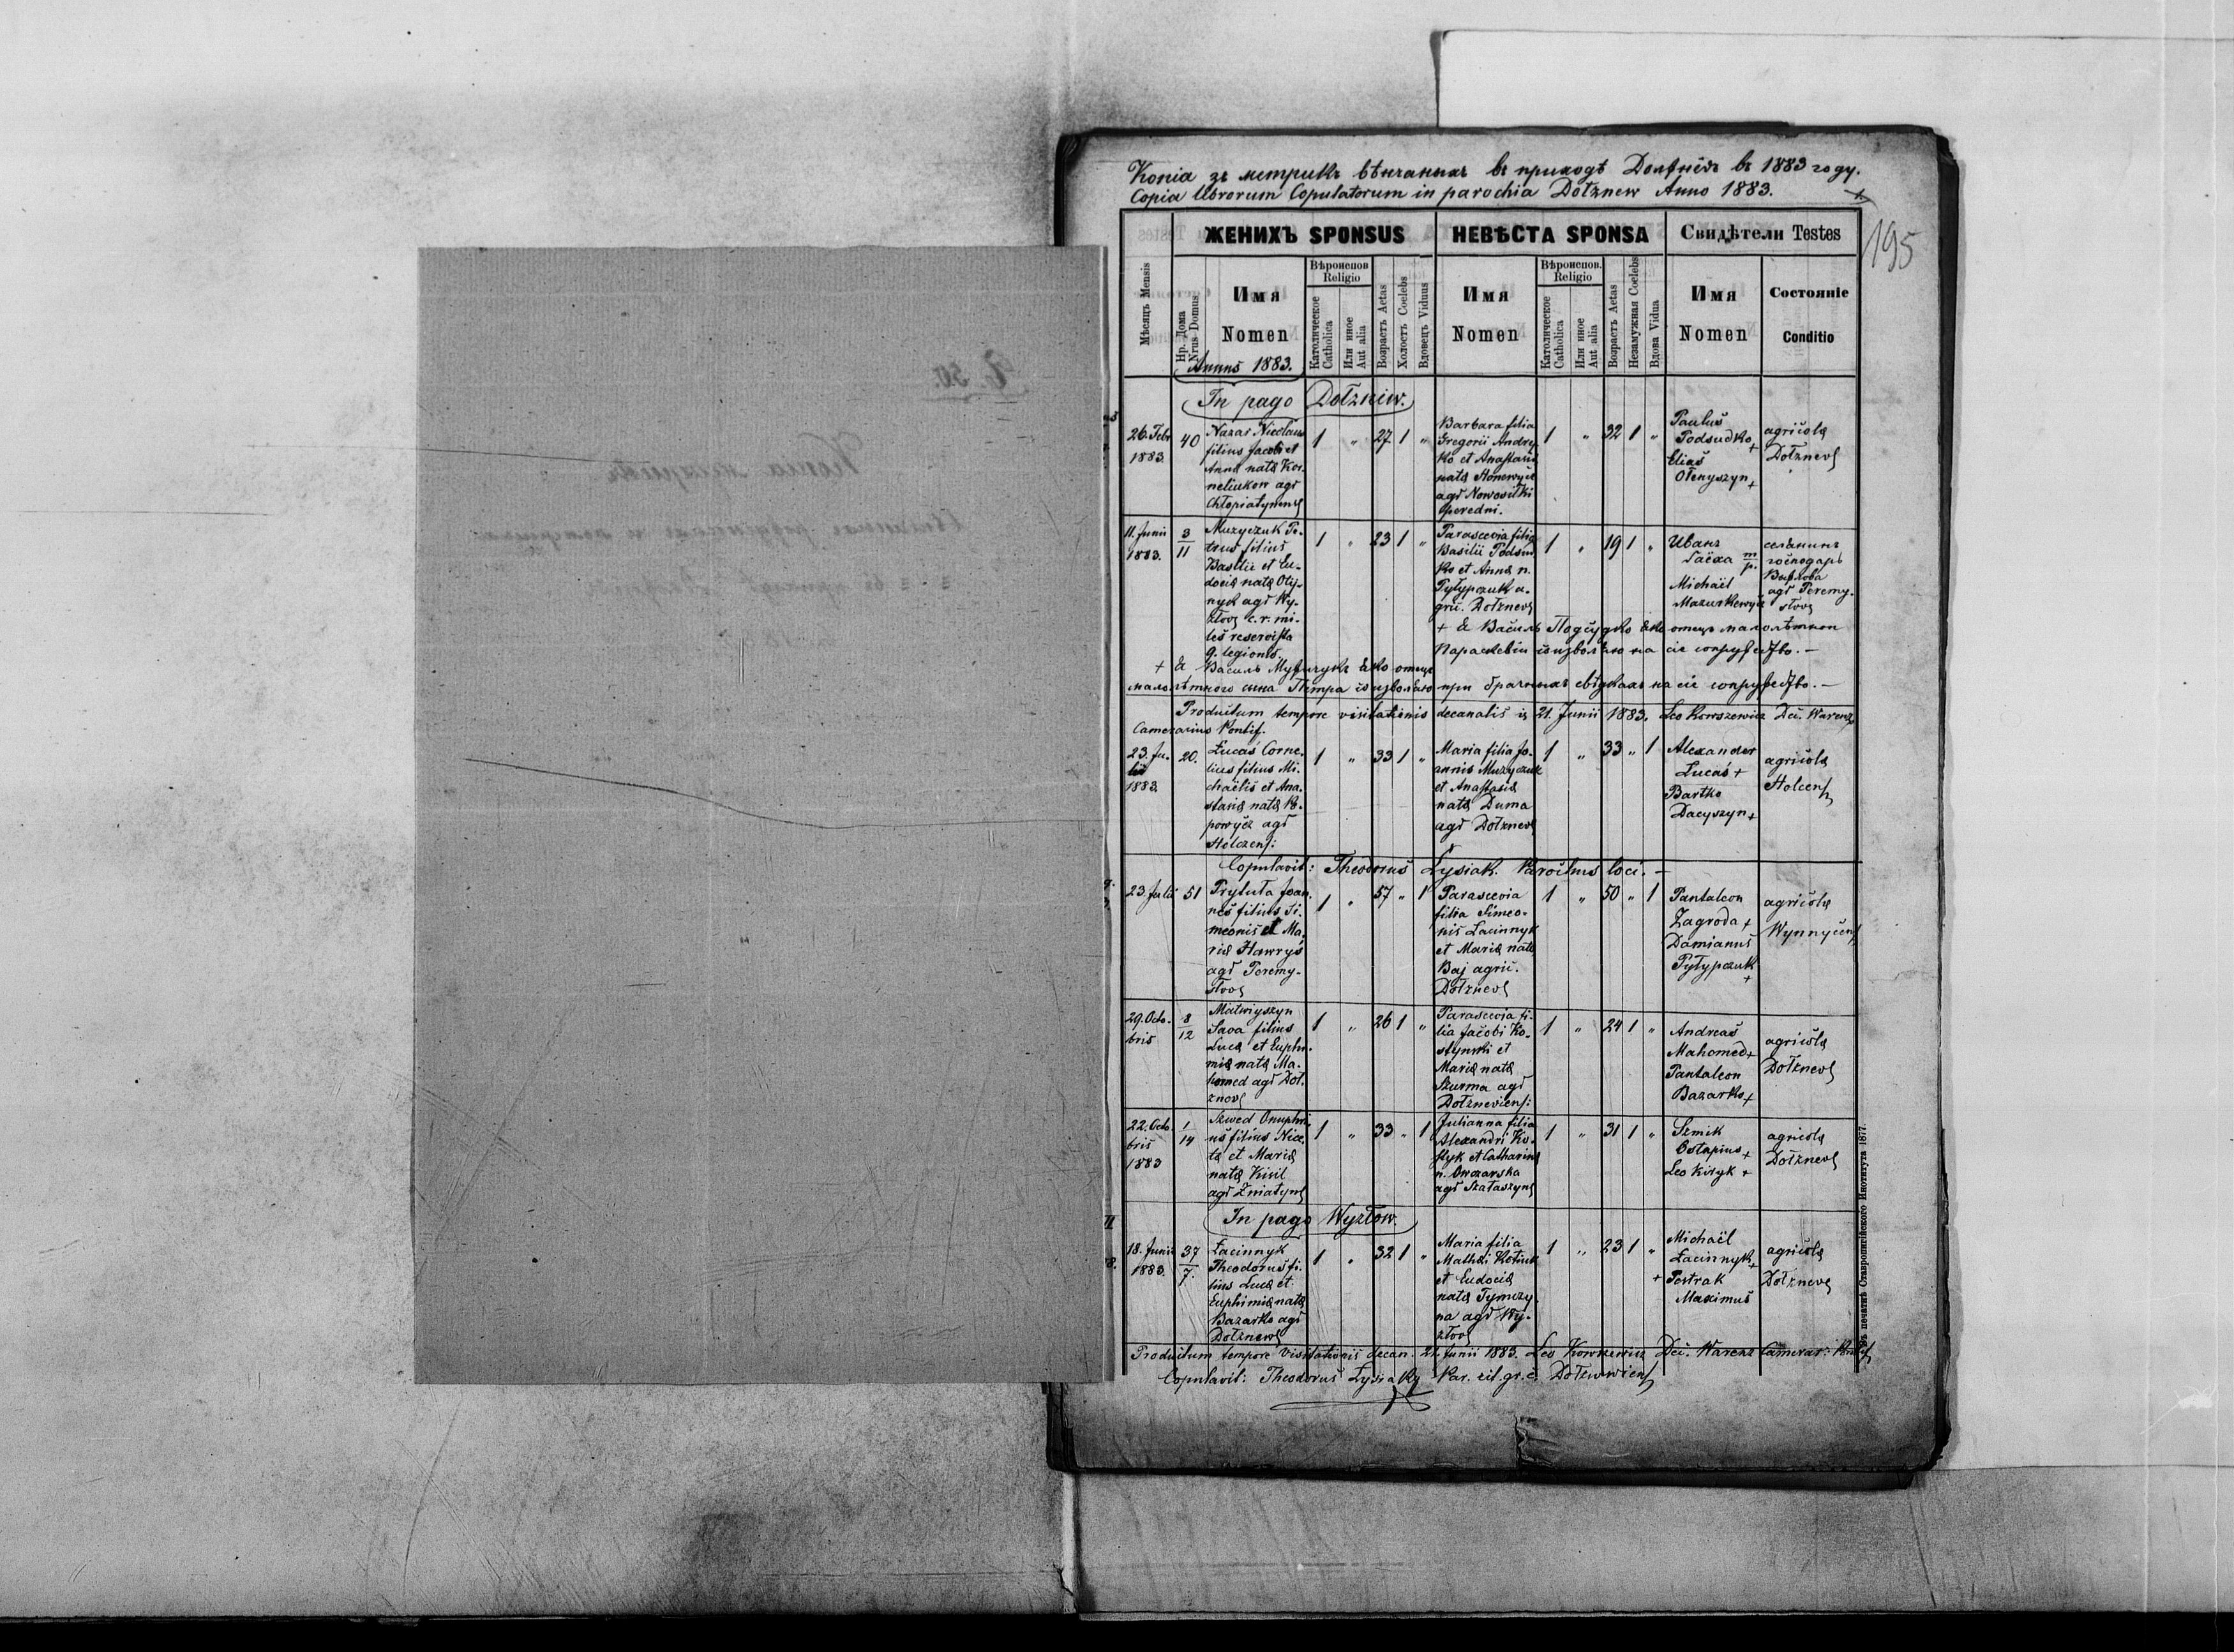 Копіа зъ метрикъ вѣнчаныхъ въ приходѣ Должнѣвъ въ 1883 году.
Copia Librorum Copulatorum in parochia Dołżnew Anno 1883.
195
ЖЕНИХЪ SPONSUS
НЕВѢСТА SPONSA
Свидѣтели Testes
Мѣсяцъ Mensis
Нр. Дома
Nrus Domus
Имя
Nomen
Annus 1883.
Вѣроиспов
Religio
Католическое
Catholica
Или иное
Aut alia
Возрастъ Aetas
Холостъ Coelebs
Вдовецъ Viduus
Имя
Nomen
Вѣроиспов.
Religio
Католическое
Catholica
Или иное
Aut alia
Возрастъ Aetas
Незамужная Coelebs
Вдова Vidua
Имя
Nomen
Состояніе
Conditio
In pago Dołzniw.
26. Febr
1883.
40
Nazar Nicolaus
filius Jacobi et
Anna nata Kor-
neliukow agr
Chłopiatynens
1 „ 27 1 „
Barbara filia
Gregorii Andry
ko et Anastasia
nata
agr Nowosiłki
Peredni.
1 „ 32 1 „
Paulus
Podsudko +
Elias
Ołenyszyn +
agricola
Dołznevs
11. Junii
1883.
3
11
Muzyczuk Pe-
trus filius
Basilii et Eu-
docia nata Oly-
nyk agr Wy-
złov c. r. mi-
les reservista
9. legionis.
1 „ 23 1 „
Parascevia filia
Basilii Podsud
ko et Anna n.
Pyłypczuk a-
gric. Dołznevs
1 „ 19 1 „
Иванъ
m
p.
Michaël
Mazurkewycz
селянинъ
господаръ
agr Peremy-
słov
+ Я Василь Подсудко яко отецъ малолѣтнои
Параскевіи соизволяю на сіе сопружество. —
+ Я Василь Музычукъ яко отецъ
малолѣтного сына Петра соизволяю при брачныхъ свѣдкахъ на сіе сопружество. —
Productum tempore visitationis decanalis 21. Junii 1883. Leo Kowszewicz Dec. Warenz
Camerarius Pontif.
23. Ju-
lii
1883
20.
Łucas Corne-
lius filius Mi-
chaëlis et Ana-
stasia nata Po-
powycz agr
Hołczens:
1 „ 33 1 „
Maria filia Jo-
annis Muzyczuk
et Anastasia
nata Duma
agr Dołznevs
1 „ 33 „ 1
Alexander
Łucas +
Bartko
Dacyszyn +
agricola
Hołcens
Copulavit: Theodorus Łysiak. Parochus loci. —
23. Julii
51
Prytuła Joan-
nes filius Si-
meonis et Ma-
ria Hawrys
agr Peremy-
słov
1 „ 57 „ 1
Parascevia
filia Simeo-
nis Łacinnyk
et Maria nata
Baj agric.
Dołznevs
1 „ 50 „ 1
Pantaleon
Zagroda +
Damianus
Pyłypczuk
+
agricola
Wynnyčens
29. Octo-
bris
8
12
Matwiyszyn
Sava filius
Luca et Euphi-
mia nata Ma-
homed agr Doł-
znevs
1 „ 26 1 „
Parascevia fi-
lia Jacobi Ko-
stynski et
Maria nata
Szurma agr
Dołzneviens:
1 „ 24 1 „
Andreas
Mahomed +
Pantaleon
Bazarko +
agricola
Dołznevs
22. Octo-
bris
1883
1
14
Szwed Onuphri
us filius Nice-
ta et Maria
nata Kisil
agr Zniatyns
1 „ 33 „ 1
Julianna filia
Alexandri Ko-
styk et Catharina
n. Owczarska
agr Szałaszyns
1 „ 31 1 „
Szmik
Ostapius +
Leo Kiryk +
agricola
Dołznevs
In pago Wyzłow.
18. Junii
1883.
37
7.
Łacinnyk
Theodorus fi-
lius Luca et
Euphimia nata
Bazarko agr
Dołznevs
1 „ 32 1 „
Maria filia
Mathaei Kotiuk
et Eudocia
nata Tymczy-
na agr Wy-
złov
1 „ 23 1 „
Michaël
Łacinnyk +
+ Pestrak
Maximus
agricola
Dołznevs
Productum tempore visitationis decan. 21. Junii 1883. Leo Kowszewicz Dec. Warenz Camerar: Pontif
Copulavit: Theodorus Łysiak Par. rit. gr. c. Dołzneviens
Въ печатнѣ Ставропигійского Института 1877.